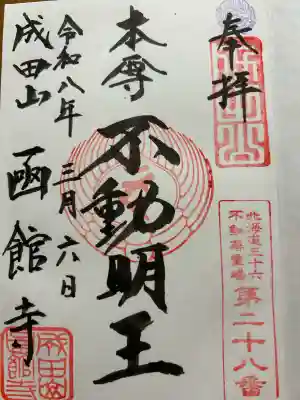 奉拝
北海道三十六
不動尊霊場
第二十八番
本尊
不動明王
令和八年 三月 六日
成田山 函館寺